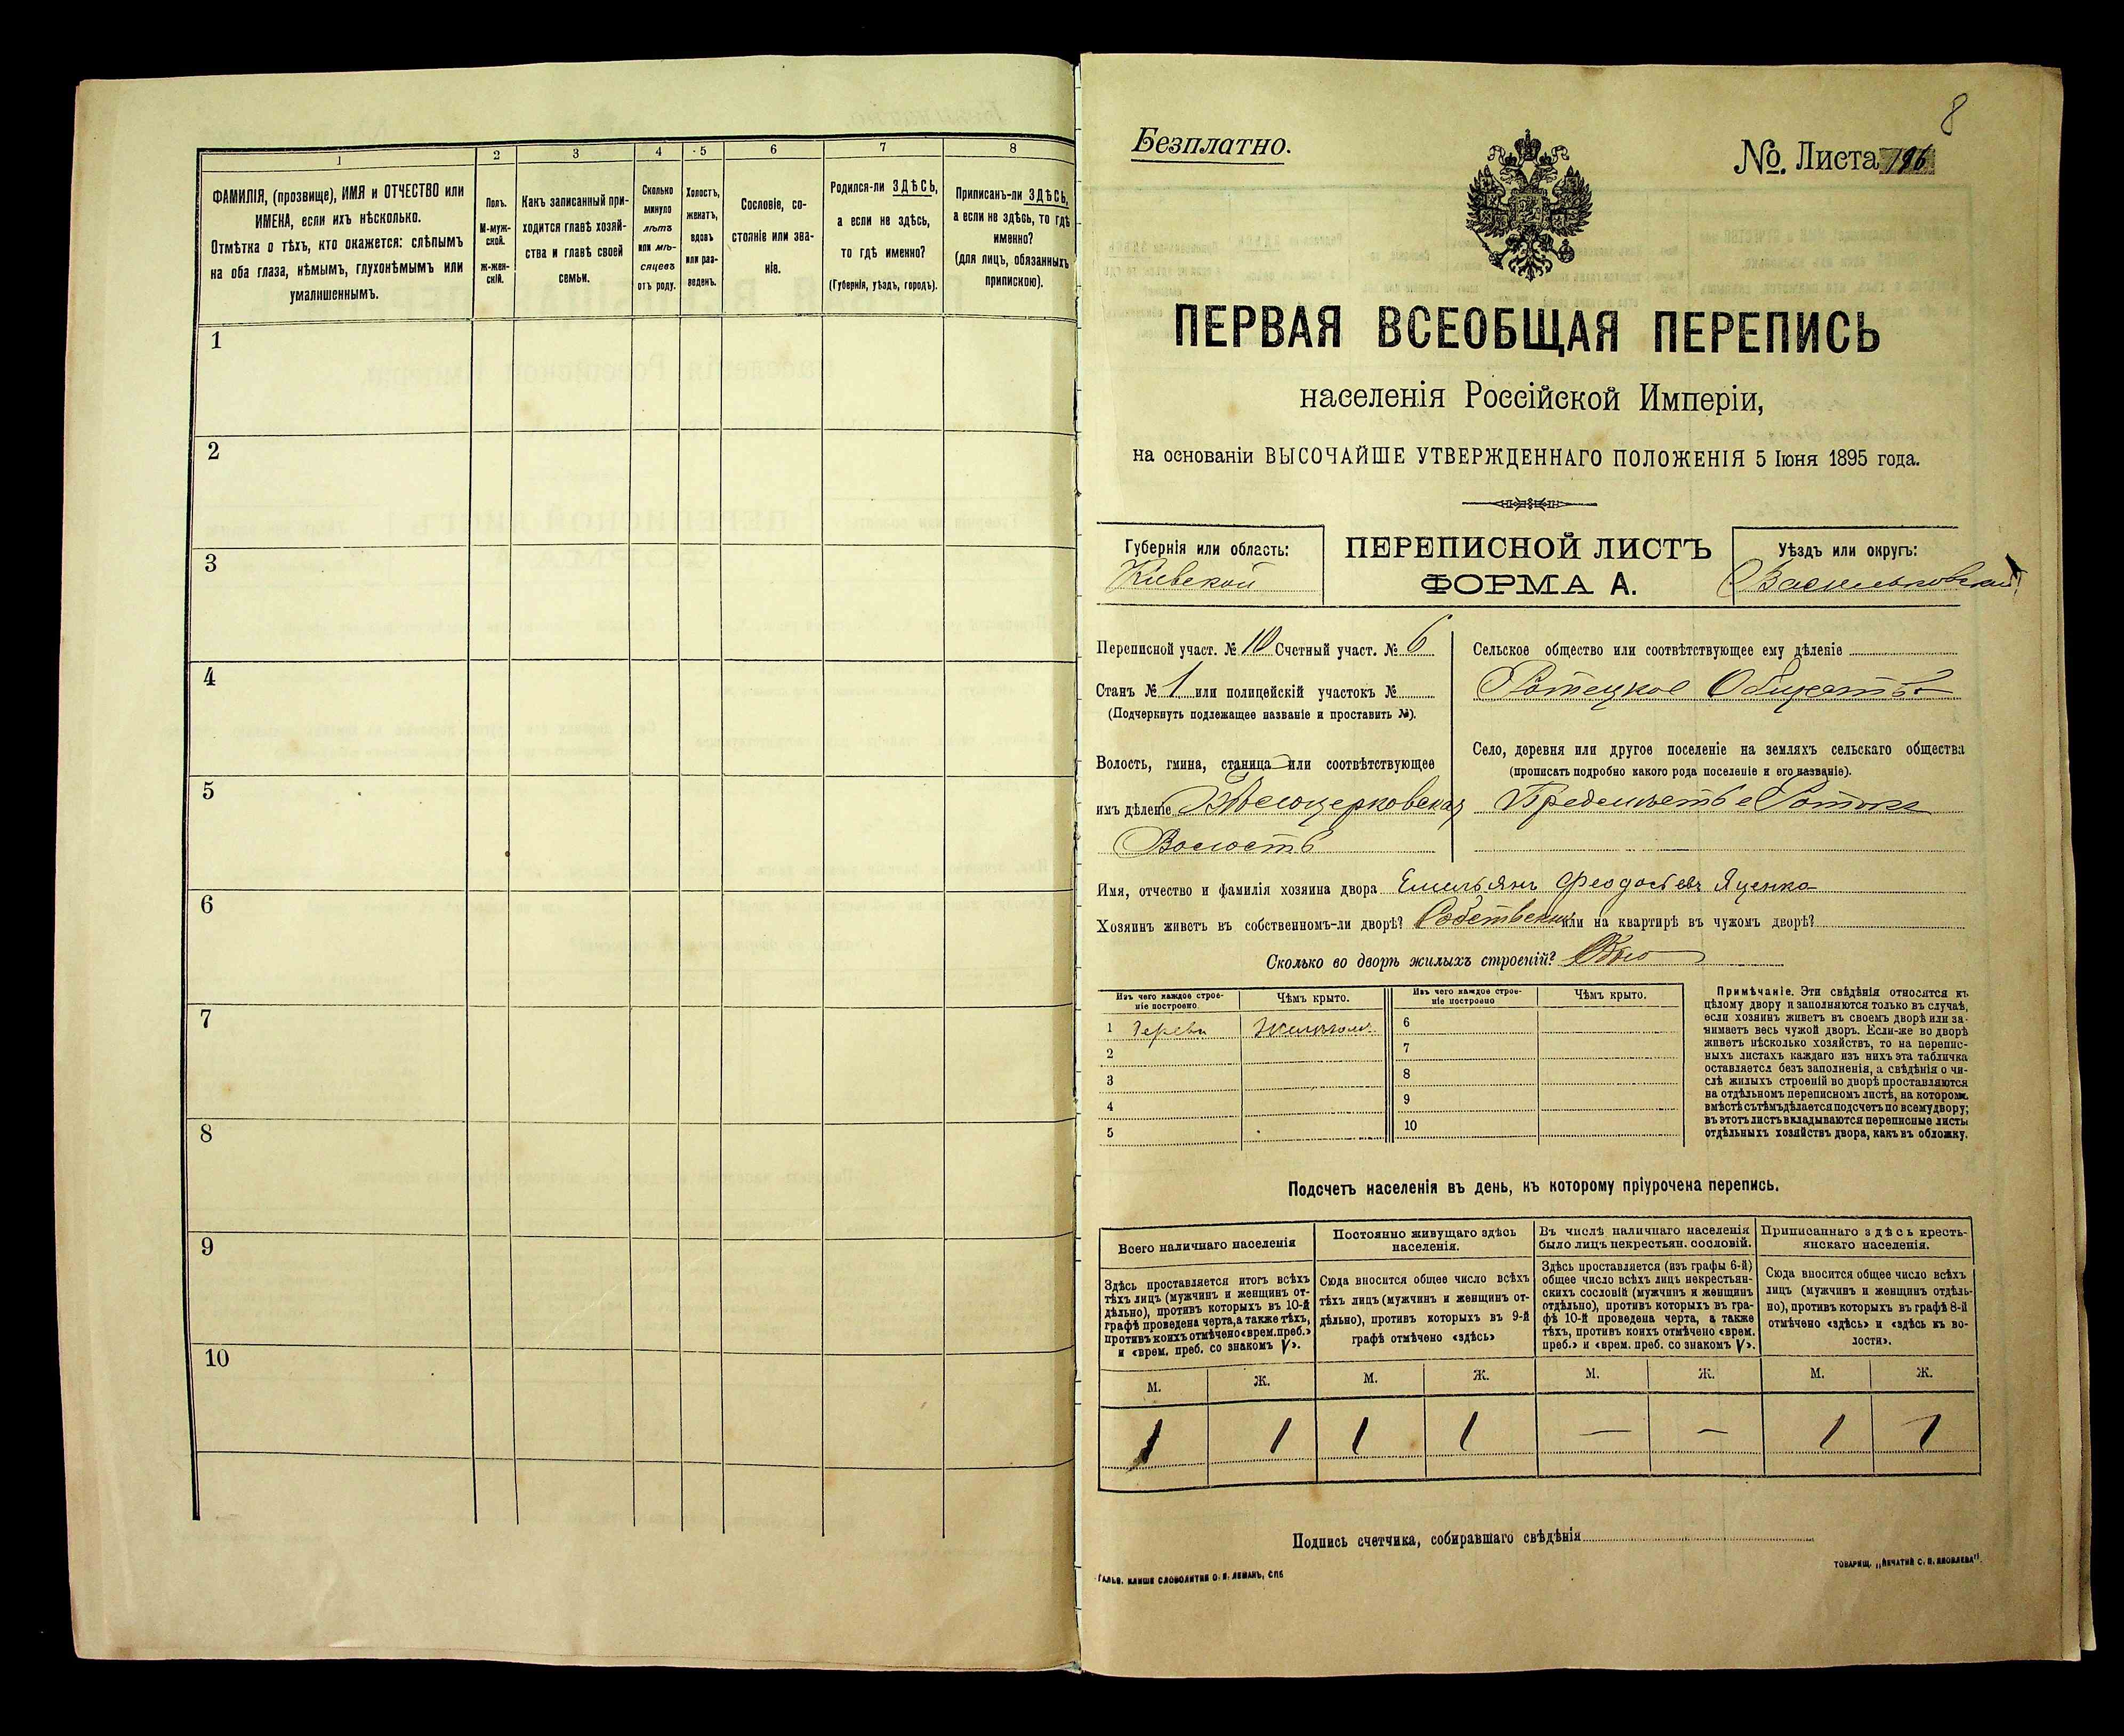 1
2
3
4
5
6
7
8
ФАМИЛІЯ, (прозвище), ИМЯ и ОТЧЕСТВО или
ИМЕНА, если ихъ нѣсколько.
Отмѣтка о тѣхъ, кто окажется: слѣпымъ
на оба глаза, нѣмымъ, глухонѣмымъ или
умалишеннымъ.
Полъ.
М-муж-
ской.
Ж-жен-
скій.
Какъ записанный при-
ходится главѣ хозяй-
ства и главѣ своей
семьи.
Сколько
минуло
лѣтъ
или мѣ-
сяцевъ
отъ роду.
Холостъ,
женатъ,
вдовъ
или раз-
веденъ.
Сословіе, со-
стояніе или зва-
ніе.
Родился-ли ЗДѢСЬ,
а если не здѣсь,
то гдѣ именно?
(Губернія, уѣздъ, городъ).
Приписанъ-ли ЗДѢСЬ,
а если не здѣсь, то гдѣ
именно?
(для лицъ, обязанныхъ
припискою).
1
2
3
4
5
6
7
8
9
10
8
Безплатно.
№. Листа 196
ПЕРВАЯ ВСЕОБЩАЯ ПЕРЕПИСЬ
населенія Россійской Имперіи,
на основаніи ВЫСОЧАЙШЕ УТВЕРЖДЕННАГО ПОЛОЖЕНІЯ 5 Іюня 1895 года.
Губернія или область:
Кіевской
ПЕРЕПИСНОЙ ЛИСТЪ
ФОРМА А.
Уѣздъ или округъ:
Васильковскій
Переписной участ. № 10 Счетный участ. № 6
Станъ № 1 или полицейскій участокъ №
(Подчеркнуть подлежащее названіе и проставить №).
Волость, гмина, станица или соотвѣтствующее
имъ дѣленіе Бѣлоцерковская
Волость
Сельское общество или соотвѣтствующее ему дѣленіе
Ротецкое Общество
Село, деревня или другое поселеніе на земляхъ сельскаго общества
(прописать подробно какого рода поселеніе и его названіе).
Предмѣстье Ротокъ
Имя, отчество и фамилія хозяина двора Емельянъ Феодосіевъ Яценко
Хозяинъ живетъ въ собственномъ-ли дворѣ? Собственном или на квартирѣ въ чужомъ дворѣ?
Сколько во дворѣ жилыхъ строеній? Одно
Изъ чего каждое строе-
ніе построено.
Чѣмъ крыто.
Изъ чего каждое строе-
ніе построено
Чѣмъ крыто.
1 Дерева
2
3
4
5
6
7
8
9
10
Примѣчаніе. Эти свѣдѣнія относятся къ
цѣлому двору и заполняются только въ случаѣ,
если хозяинъ живетъ въ своемъ дворѣ или за-
нимаетъ весь чужой дворъ. Если-же во дворѣ
живетъ нѣсколько хозяйствъ, то на перепис-
ныхъ листахъ каждаго изъ нихъ эта табличка
оставляется безъ заполненія, а свѣдѣнія о чи-
слѣ жилыхъ строеній во дворѣ проставляются
на отдѣльномъ переписномъ листѣ, на которомъ
вмѣстѣ съ тѣмъ дѣлается подсчетъ по всему двору;
въ этотъ листъ вкладываются переписные листы
отдѣльныхъ хозяйствъ двора, какъ въ обложку.
Подсчетъ населенія въ день, къ которому пріурочена перепись.
Всего наличнаго населенія
Здѣсь проставляется итогъ всѣхъ
тѣхъ лицъ (мужчинъ и женщинъ от-
дѣльно), противъ которыхъ въ 10-й
графѣ проведена черта, а также тѣхъ,
противъ коихъ отмѣчено «врем. преб.»
и «врем. преб. со знакомъ V».
Постоянно живущаго здѣсь
населенія.
Сюда вносится общее число всѣхъ
тѣхъ лицъ (мужчинъ и женщинъ от-
дѣльно), противъ которыхъ въ 9-й
графѣ отмѣчено «здѣсь»
Въ числѣ наличнаго населенія
было лицъ некрестьян. сословій.
Здѣсь проставляется (изъ графы 6-й)
общее число всѣхъ лицъ некрестьян-
скихъ сословій (мужчинъ и женщинъ
отдѣльно), противъ которыхъ въ гра-
фѣ 10-й проведена черта, а также
тѣхъ, противъ коихъ отмѣчено «врем.
преб.» и «врем. преб. со знакомъ V».
Приписаннаго здѣсь кресть-
янскаго населенія.
Сюда вносится общее число всѣхъ
лицъ (мужчинъ и женщинъ отдѣль-
но), противъ которыхъ въ графѣ 8-й
отмѣчено «здѣсь» и «здѣсь къ во-
лости».
М. Ж. М. Ж. М. Ж. М. Ж.
1 1 1 1 — — 1 1
Подпись счетчика, собиравшаго свѣдѣнія
ГАЛЬВ. КЛИШЕ СЛОВОЛИТНИ О. И. ЛЕМАНЪ, СПБ
ТОВАРИЩ. „ПЕЧАТНЯ С. П. ЯКОВЛЕВА".